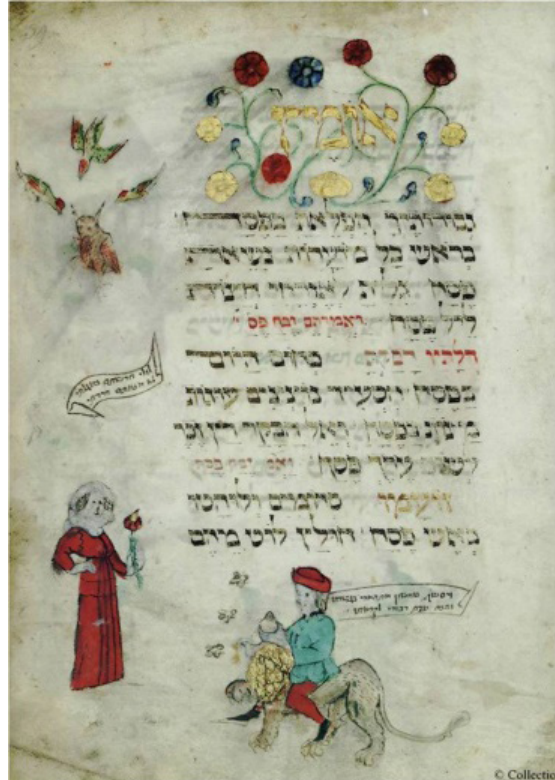 אומץ
גבורותיך הפלאת בפסח
בראש כל מועדות נשאת
פסח גלית לאזרחי חצות
ליל פסח ואמרתם זבח פס
דלתיו דפקת כחום היום
בפסח הסעיד נוצצים עוגות
מצות בפסח ואל הבקר רץ זכר
לשור ערך פסח ואמ זבח פסח
זועמו סדומים ולוהטו
באש פסח חולץ לוט מהם
© Collectio